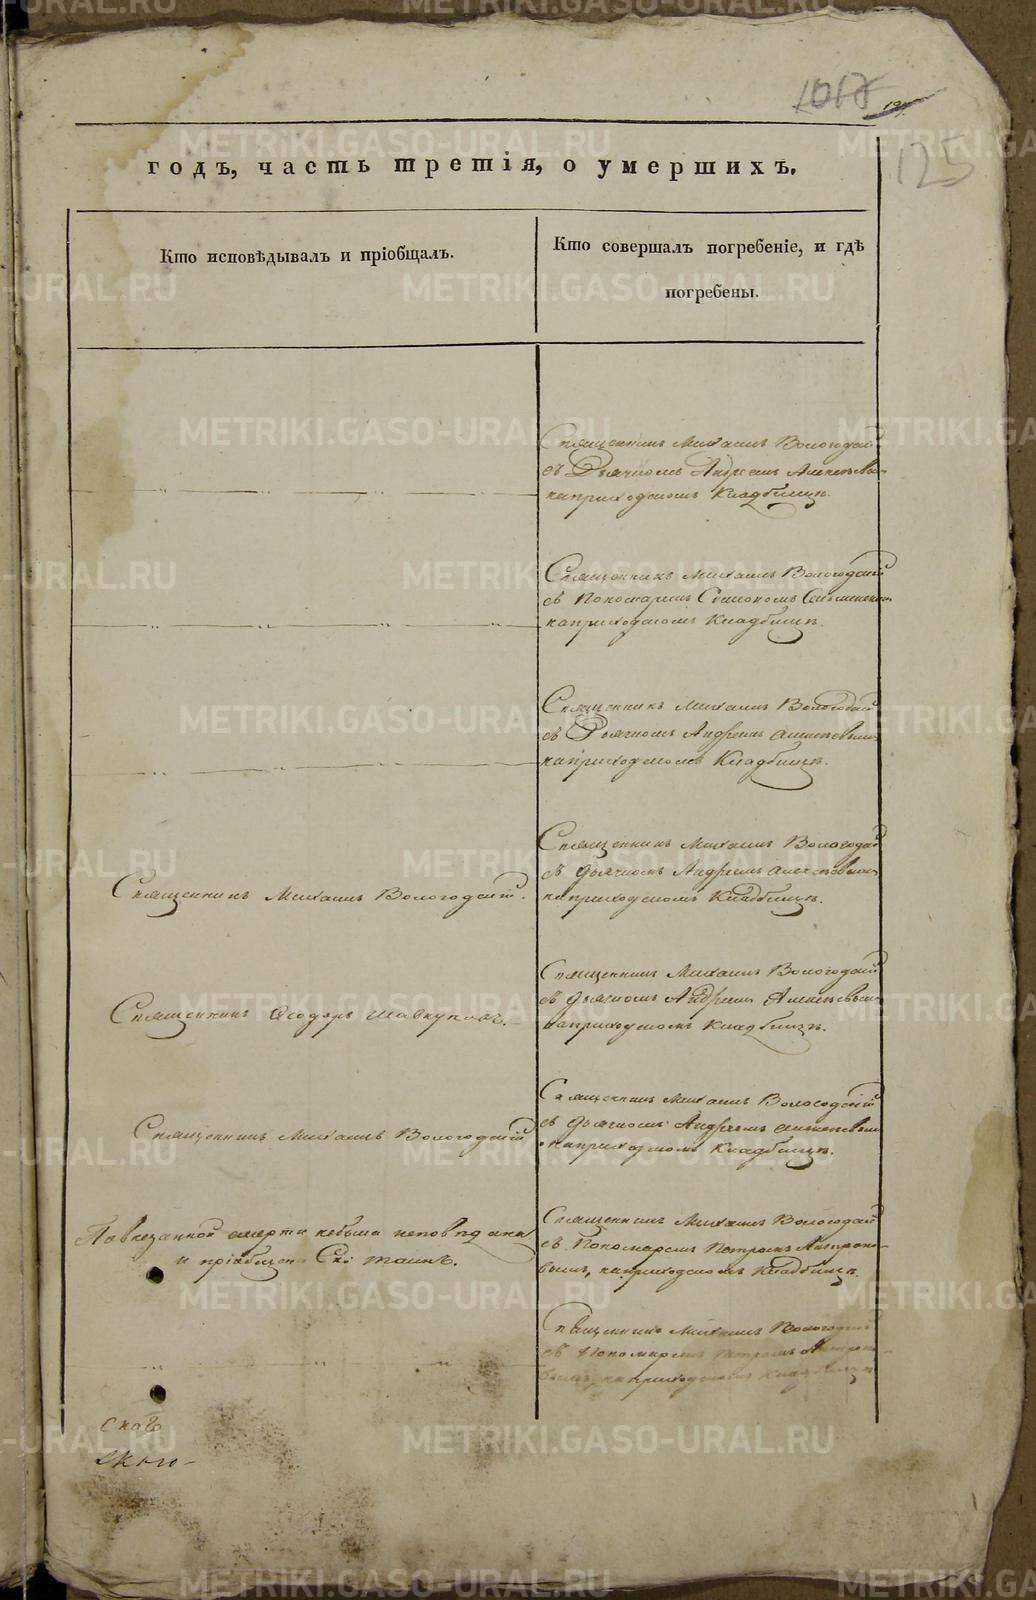 1017
125
годъ, часть третія, о умершихъ.
Кто исповѣдывалъ и пріобщалъ.
Кто совершалъ погребеніе, и гдѣ
погребены.
Священникъ Михаилъ Вологодскій
съ Дьячкомъ Андреемъ
на приходскомъ Кладбищѣ.
Священникъ Михаилъ Вологодскій
съ Пономаремъ Симеономъ
на приходскомъ Кладбищѣ.
Священникъ Михаилъ Вологодскій
съ Дьячкомъ Андреемъ Алексѣевымъ
на приходскомъ Кладбищѣ.
Священникъ Михаилъ Вологодскій.
Священникъ Михаилъ Вологодскій
съ дьячкомъ Андреемъ Алексѣевымъ
на приходскомъ Кладбищѣ.
Священникъ Ѳеодоръ Шавкуновъ.
Священникъ Михаилъ Вологодскій
съ дьячкомъ Андреемъ Алексѣевымъ
на приходскомъ Кладбищѣ.
Священникъ Михаилъ Вологодскій
Священникъ Михаилъ Вологодскій
съ дьячкомъ Андреемъ Алексѣевымъ
на приходскомъ Кладбищѣ.
По внезапной смерти небыла исповѣдана
и пріобщена Св: таинъ.
Священникъ Михаилъ Вологодскій
съ Пономаремъ Петромъ Антроповымъ, на приходскомъ Кладбищѣ.
Священникъ Михаилъ Вологодскій
съ Пономаремъ Петромъ
на приходскомъ Кладбищѣ
METRIKI.GASO-URAL.RU